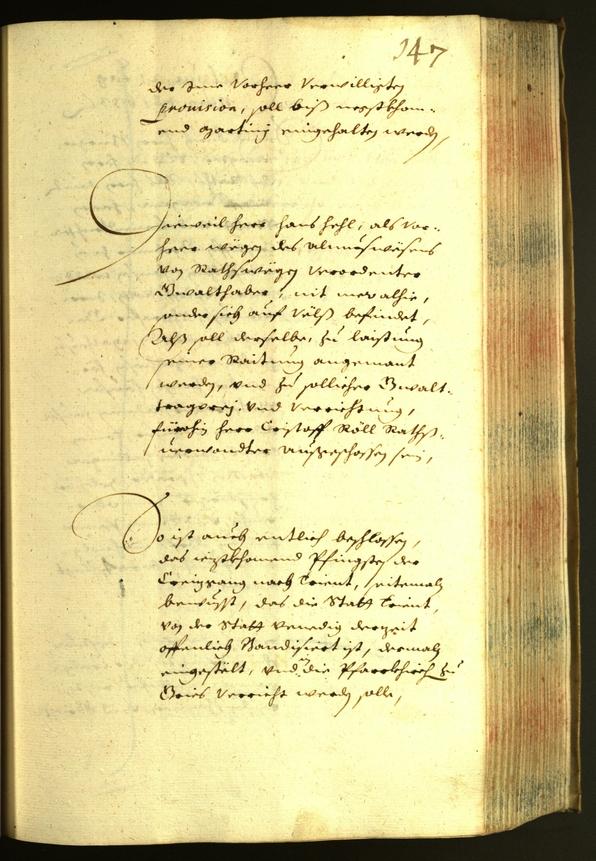 147
der Ime vorheer verwilligten
provision, soll biß negstkhom¬
end Martinj eingehalten werden,
Dieweil herr hans hehl, als vor¬
heer wegen des almueswesens
von Rathswegen verordenter
Gwalthaber, nit mer alhie,
sonder sich auf Völß befindet,
Alß soll derselbe, zu laistung
seiner Raitung angemant
werden, vnd zu sollicher Gwalt¬
tragerej vnd verrichtung,
fürohin herr Cristoff Röll Raths¬
uerwondter außgeschossen sein,
So ist auch entlich beschlossen,
das negstkhomend Pfingsten der
Creizgang nach Trient, seitemaln
bewüsst, das die Statt Trient,
von der Statt Venedig derzeit
offenlich Bandisiert ist, dermaln
eingestelt, vnd in die Pfarrkhirch zu
Gries verricht werden solle,